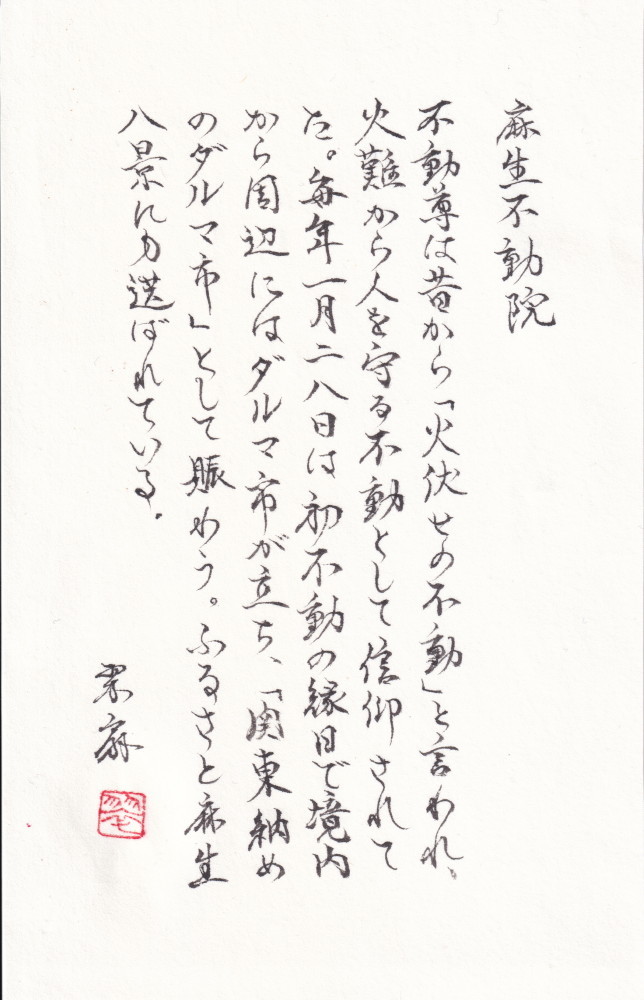 麻生不動院
不動尊は昔から「火伏せの不動」と言われ、
火難から人を守る不動として信仰されて
た。毎年一月二八日は初不動の縁日で境内
から周辺にはダルマ市が立ち、「関東納め
のダルマ市」として賑わう。ふるさと麻生
八景にも選ばれている。